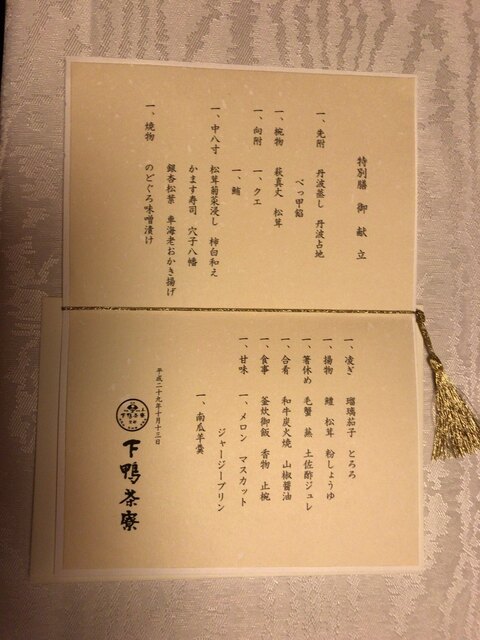 特別膳 御献立
一、先附 丹波蒸し 丹波占地
べっ甲餡
一、椀物 萩真丈 松茸
一、向附 一、クエ
一、鮪
一、中八寸 松茸菊菜浸し 柿白和え
かます寿司 穴子八幡
銀杏松葉 車海老おかき揚げ
一、焼物 のどぐろ味噌漬け
一、凌ぎ 瑠璃茄子 とろろ
一、揚物 鱧 松茸 粉しょうゆ
一、箸休め 毛蟹 蕪 土佐酢ジュレ
一、合肴 和牛炭火焼 山椒醤油
一、食事 釜炊御飯 香物 止椀
一、甘味 一、メロン マスカット
ジャージープリン
一、南瓜羊羹
平成二十九年十月十三日
下鴨茶寮